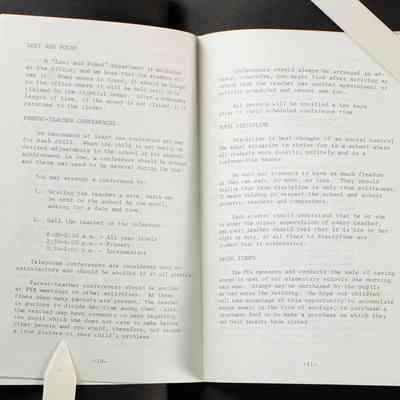 LOST AND FOUND
A "Lost and Found" department is maintained
at the office, and we hope that its students will
use it. When money is found, it should be brought
to the office where it will be held until it is
claimed by the rightful owner. After a reasonable
length of time, if the money is not claimed, it is
returned to the finder.
PARENT-TEACHER CONFERENCES
We recommend at least one conference per year
for each child. When the child is not making
desired adjustments to the school or his
achievement is low, a conference should be
and there may need to be several during the year.
You may arrange a conference by:
1. Writing the teacher a note, which can
be sent to the school by the pupil,
asking for a date and time.
2. Call the teacher at the school
8:00-8:30 a.m. - All year levels
2:30-4:00 p.m. - Primary
3:30-4:00 p.m. - Intermediate
Telephone conferences are considered very
satisfactory and should be avoided if at all possible.
Parent-teacher conferences should be avoided
at PTA meetings or other activities. At these
times when many parents are present, the teacher
is trying to divide her time among them. Also,
the teacher may have comments to make regarding
the pupil which she does not care to make before
other people and you would, therefore, not secure
a true picture of your child's problems.
-10-
Conferences should always be arranged in
advance; otherwise, one might find after arriving at
school that the teacher has another appointment or
activity scheduled and cannot see you.
All parents will be notified a few days
prior to their scheduled conference time
Discipline is best thought of as social control
The ideal situation to strive for is a school where
all students work quietly, politely and in a
We want our students to have as much freedom
as they can earn, or want, or use. They should
realize that true discipline is only true politeness.
It means holding in respect the school and school
property, teachers and companions.
Each student should understand that he or she
is under the direct supervision of every teacher
and every teacher should feel that it is his or her
right or duty, at all times to discipline any
student when it is necessary.
The PTA sponsors and conducts the sale of saving
stamps in most of our elementary schools one morning
each week. Stamps may be purchased by the pupils
as you enter the building. We hope our children
will take advantage of this opportunity to accumulate
some money in the form of savings, to purchase a
-11-